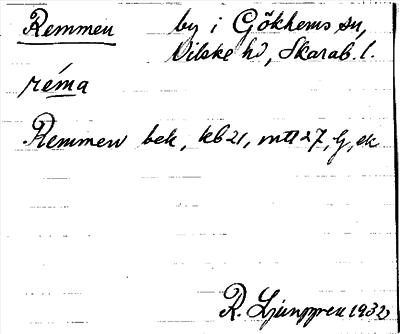 Remmen by i Gökhems sn,
Vilske hd, Skarab. l.
réma
Remmen bek, kb 21, mtl 27, G, ek
R. Ljunggren 1932